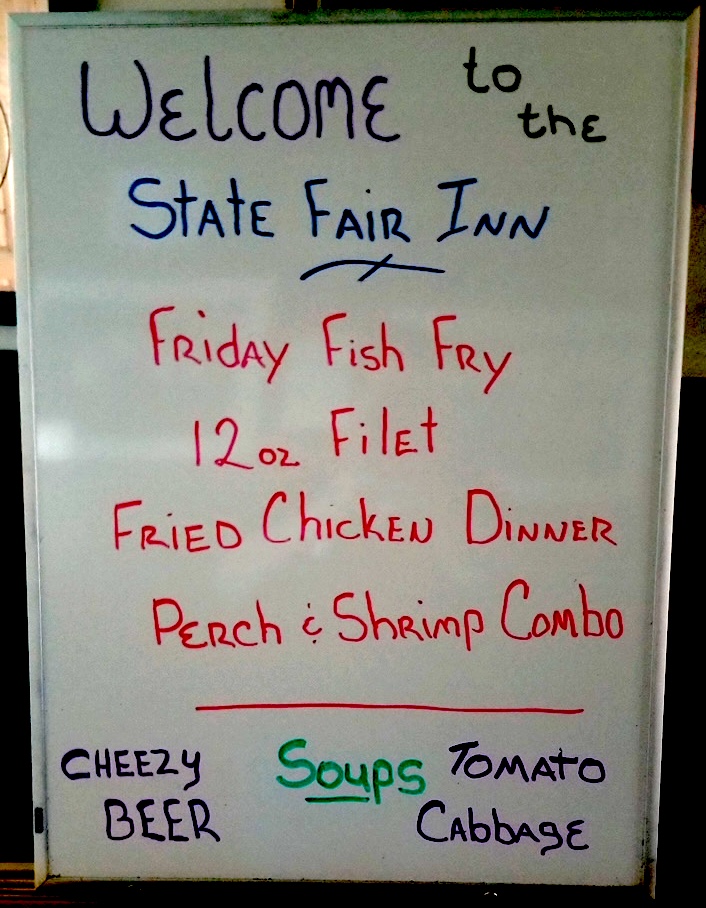 WELCOME to the
STATE FAIR INN
FRIDAY FISH FRY
12oz FILET
FRIED CHICKEN DINNER
PERCH & SHRIMP COMBO
CHEEZY BEER
Soups
TOMATO CABBAGE